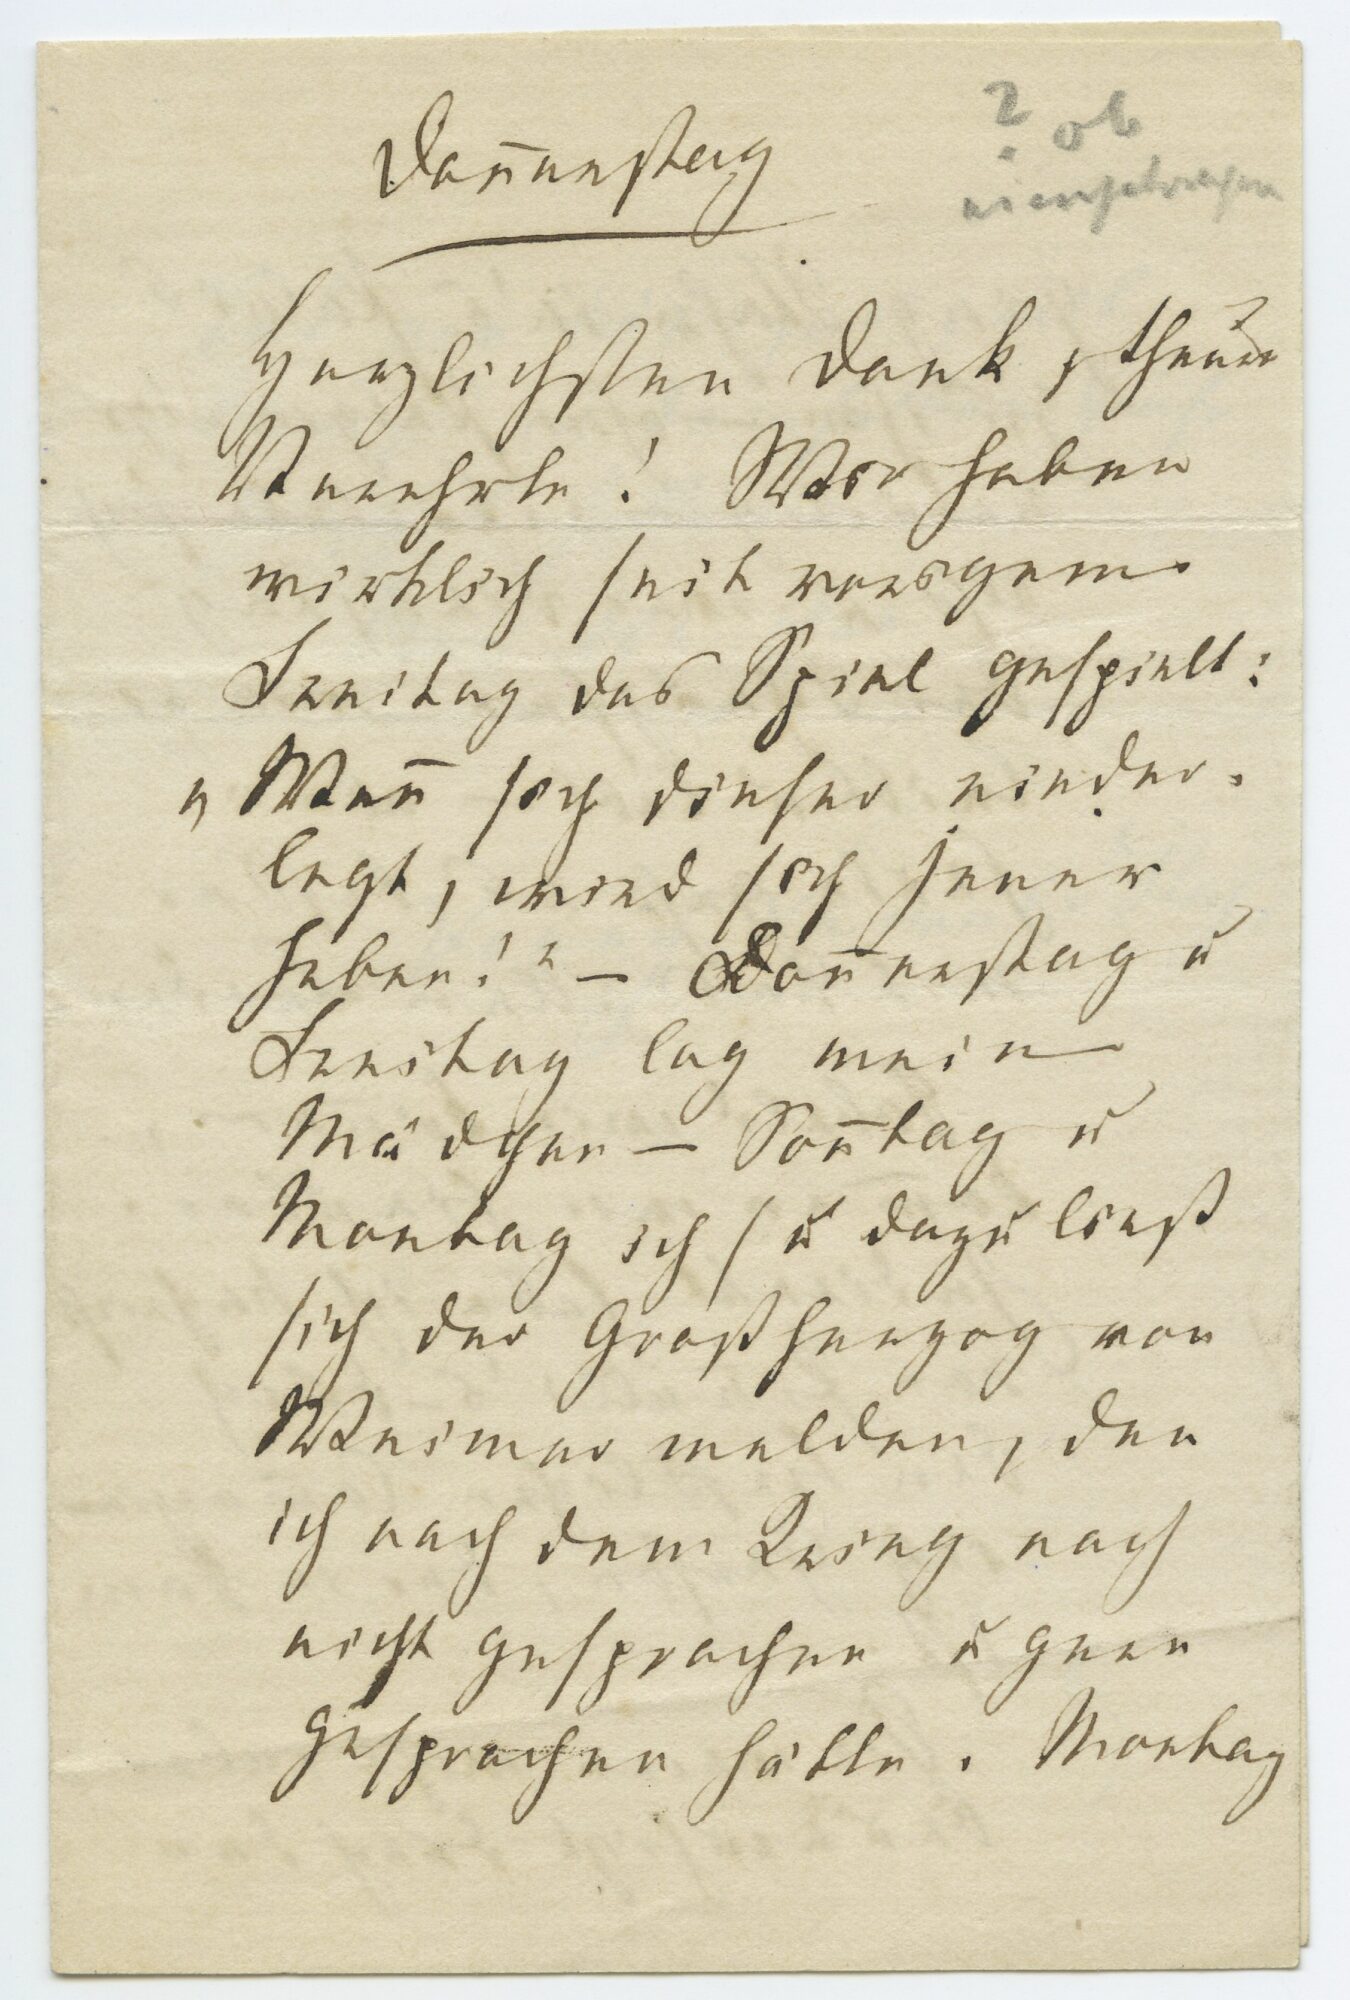 Don̄erstag
? ob
eingetragen
Herzlichsten Dank, theure
Verehrte! Wir haben
wirklich seit vorigem
Freitag das Spiel gespielt:
„Wen̄ sich dieser nieder-
legt, wird sich jener
heben!“ – Don̄erstag u
Freitag lag mein
Mädchen – Son̄tag u
Montag ich / u dazu ließ
sich der Großherzog von
Weimar melden, den
ich nach dem Krieg noch
nicht gesprochen u gern
gesprochen hätte. Montag